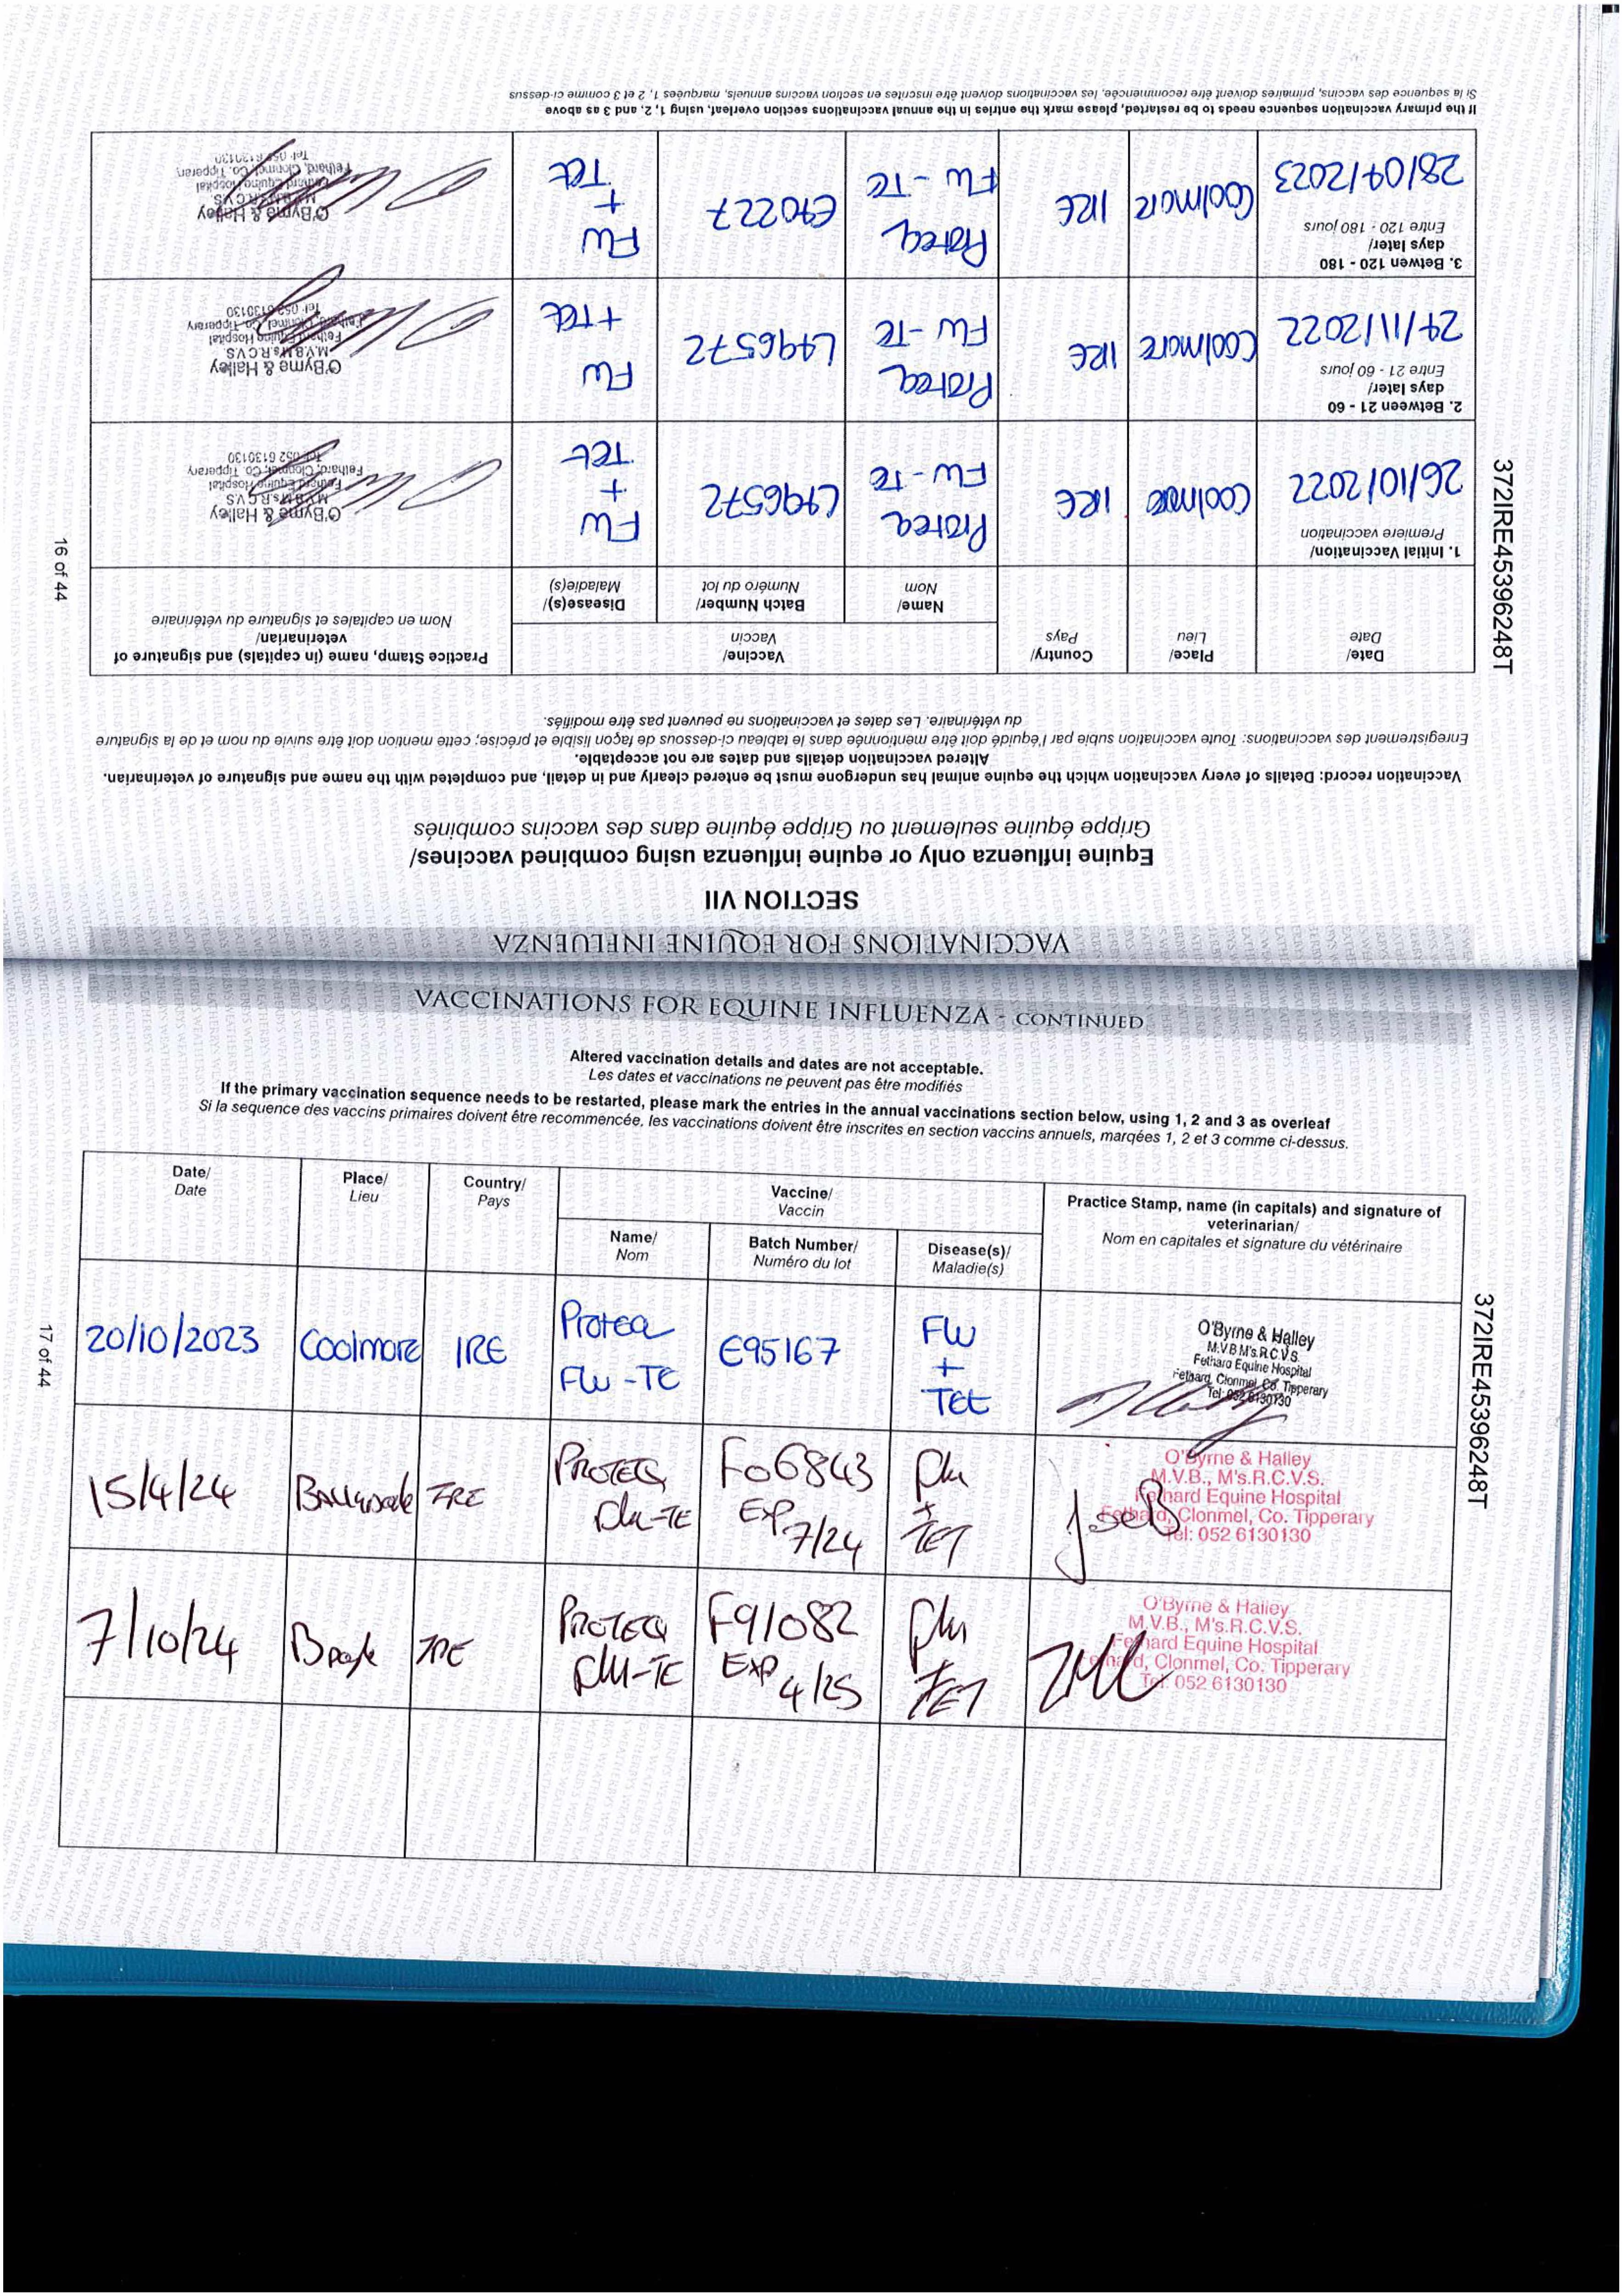 VACCINATIONS FOR EQUINE INFLUENZA
SECTION VII
Equine influenza only or equine influenza using combined vaccines/
Grippe équine seulement ou Grippe équine dans des vaccins combinés
Vaccination record: Details of every vaccination which the equine animal has undergone must be entered clearly and in detail, and completed with the name and signature of veterinarian.
Altered vaccination details and dates are not acceptable.
Enregistrement des vaccinations: Toute vaccination subie par l'équidé doit être mentionnée dans le tableau ci-dessous de façon lisible et précise; cette mention doit être suivie du nom et de la signature
du vétérinaire. Les dates et vaccinations ne peuvent pas être modifiés.
Date/
Date
Place/
Lieu
Country/
Pays
Vaccine/
Vaccin
Practice Stamp, name (in capitals) and signature of
veterinarian/
Nom en capitales et signature du vétérinaire
Name/
Nom
Batch Number/
Numéro du lot
Disease(s)/
Maladie(s)
1. Initial Vaccination/
Première vaccination
26/10/2022
Coolmore
IRE
Proteq
FLU-TE
L496572
FLU
+
TET
O'Byrne & Halley
M.V.B M's R.C.V.S
Fethard Equine Hospital
Fethard, Clonmel, Co. Tipperary
Tel: 052 6130130
2. Between 21 - 60
days later/
Entre 21 - 60 jours
24/11/2022
Coolmore
IRE
Proteq
FLU-TE
L496572
FLU
+ TET
O'Byrne & Halley
M.V.B M's R.C.V.S
Fethard Equine Hospital
Fethard, Clonmel, Co. Tipperary
Tel: 052 6130130
3. Betwen 120 - 180
days later/
Entre 120 - 180 jours
28/04/2023
Coolmore
IRE
Proteq
FLU-TE
E90227
FLU
+
TET
O'Byrne & Halley
M.V.B M's R.C.V.S
Fethard Equine Hospital
Fethard, Clonmel, Co. Tipperary
Tel: 052 6130130
If the primary vaccination sequence needs to be restarted, please mark the entries in the annual vaccinations section overleaf, using 1, 2, and 3 as above
Si la sequence des vaccins, primaires doivent être recommencée, les vaccinations doivent être inscrites en section vaccins annuels, marquées 1, 2 et 3 comme ci-dessus
372IRE45396248T
16 of 44
VACCINATIONS FOR EQUINE INFLUENZA - CONTINUED
Altered vaccination details and dates are not acceptable.
Les dates et vaccinations ne peuvent pas être modifiés
If the primary vaccination sequence needs to be restarted, please mark the entries in the annual vaccinations section below, using 1, 2 and 3 as overleaf
Si la sequence des vaccins primaires doivent être recommencée, les vaccinations doivent être inscrites en section vaccins annuels, marqées 1, 2 et 3 comme ci-dessus.
Date/
Date
Place/
Lieu
Country/
Pays
Vaccine/
Vaccin
Practice Stamp, name (in capitals) and signature of
veterinarian/
Nom en capitales et signature du vétérinaire
Name/
Nom
Batch Number/
Numéro du lot
Disease(s)/
Maladie(s)
20/10/2023
Coolmore
IRE
Proteq
FLU-TE
E95167
FLU
+
TET
O'Byrne & Halley
M.V.B M's.R.C.V.S.
Fethard Equine Hospital
Fethard, Clonmel, Co. Tipperary
Tel: 052 6130130
15/4/24
IRE
PROTEQ
Flu-TE
F06843
EXP 7/24
Flu
+
TET
O'Byrne & Halley
M.V.B., M's.R.C.V.S.
Fethard Equine Hospital
Fethard, Clonmel, Co. Tipperary
Tel: 052 6130130
7/10/24
IRE
PROTEQ
FLU-TE
F91082
EXP 4/25
Flu
TET
O'Byrne & Halley
M.V.B., M's.R.C.V.S.
Fethard Equine Hospital
Fethard, Clonmel, Co. Tipperary
Tel: 052 6130130
372IRE45396248T
17 of 44